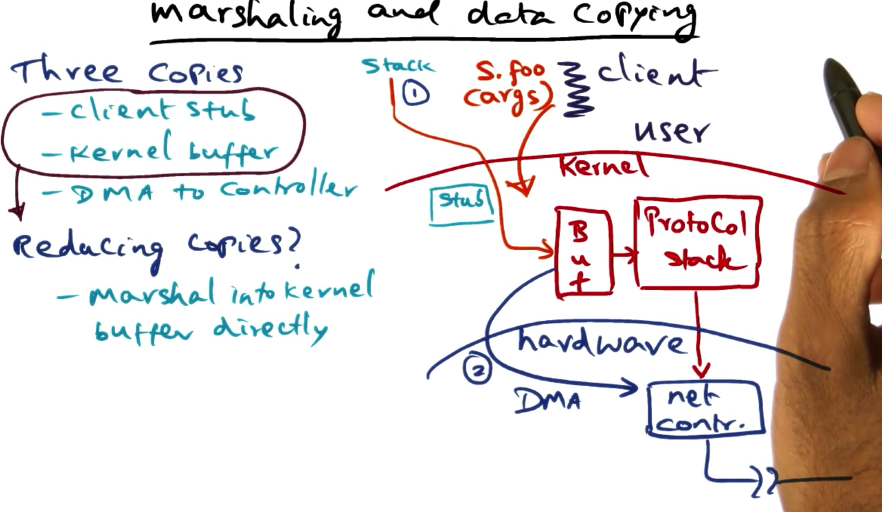 marshaling and data copying
Three Copies
- Client Stub
- Kernel buffer
- DMA to Controller
Reducing Copies?
- Marshal into Kernel
buffer directly
Stack
1
S.foo
(args)
client
user
Kernel
Stub
Buf
Protocol
stack
hardware
2
DMA
net
contr.